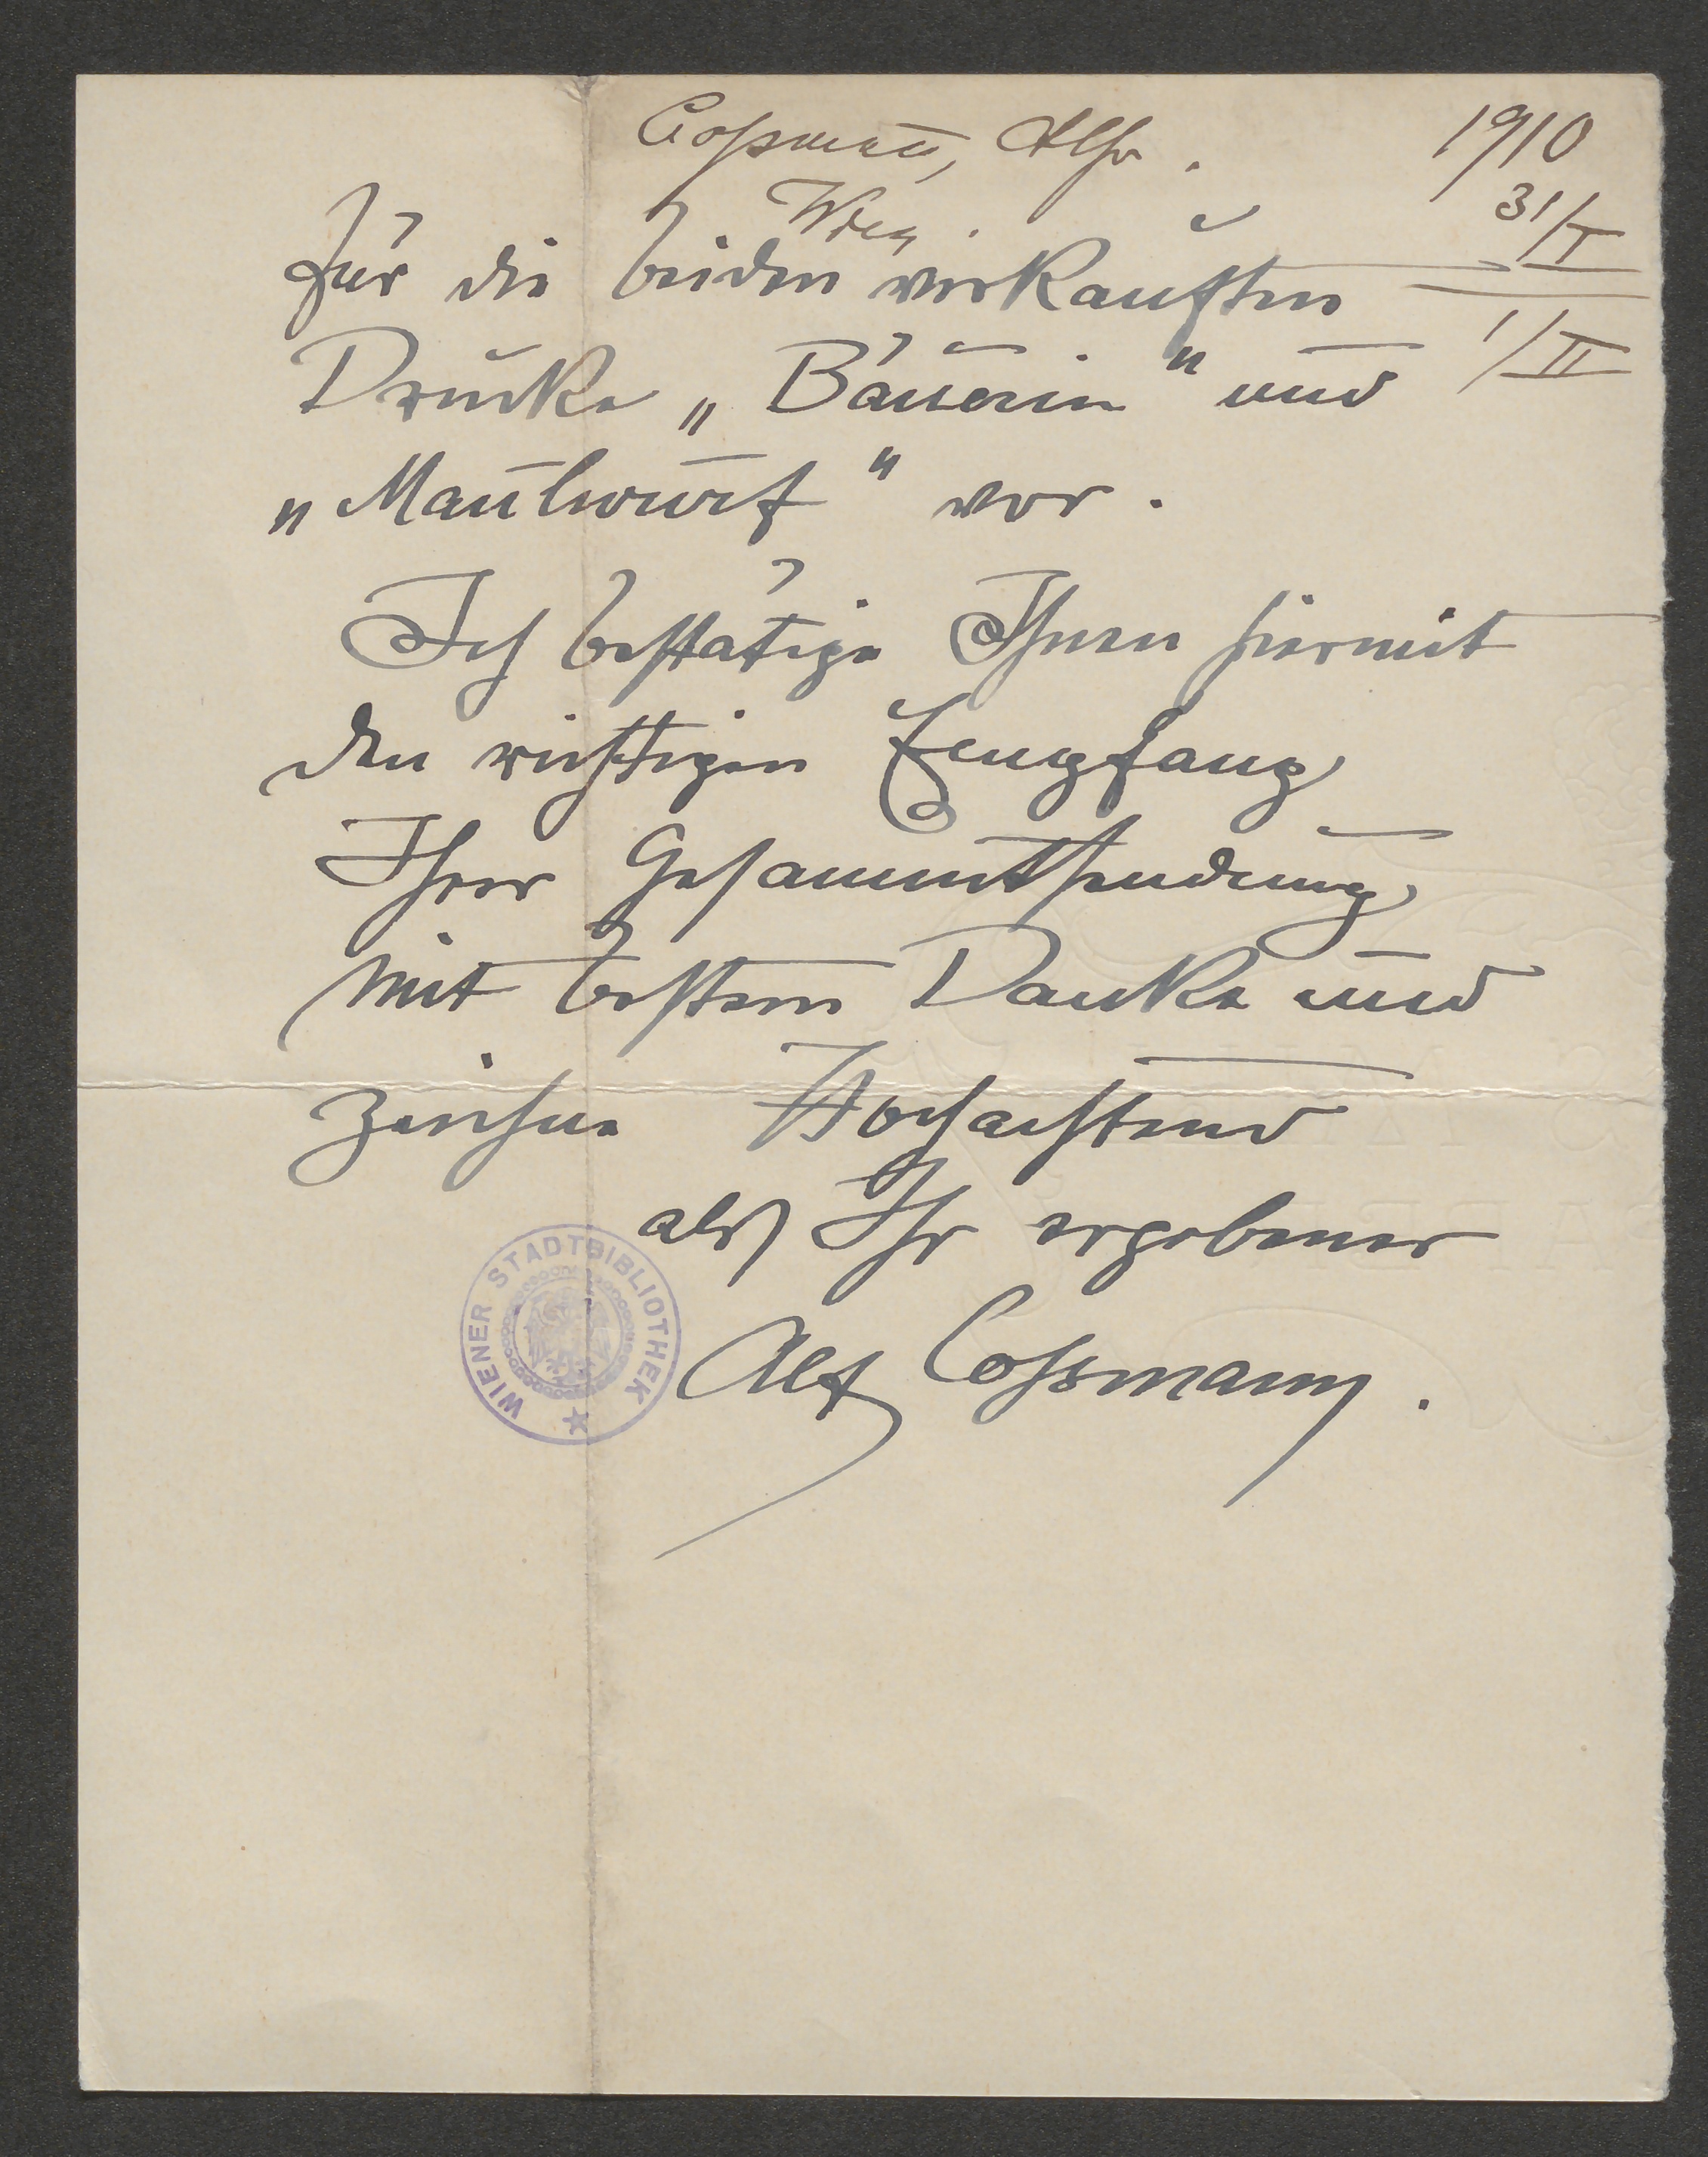 Coßmann, Alfr. 1910
Wien. 31/I
für die beiden verkauften
1/II
Drucke „Bäuerin" und
„Maulwurf" vor.
Ich bestätige Ihnen hiermit
den richtigen Empfang
Ihrer Gesammtsendung
mit bestem Danke und
zeichne Hochachtend
als Ihr ergebener
Alf Coßmann.
WIENER STADTBIBLIOTHEK